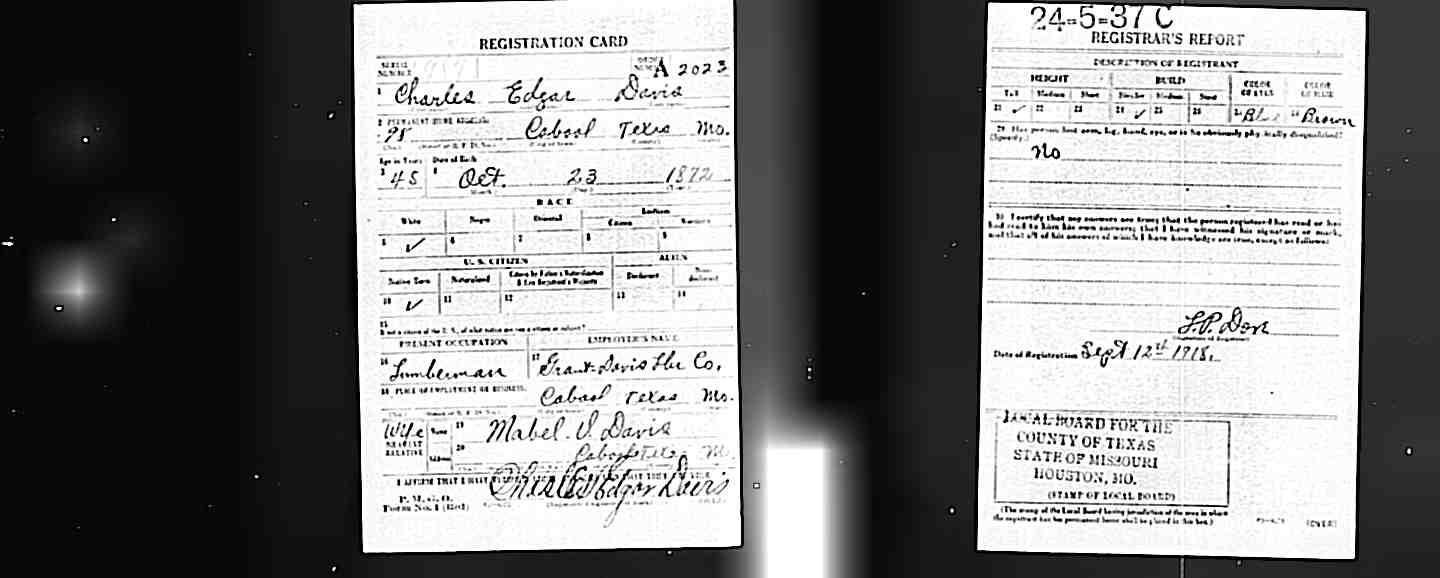 REGISTRATION CARD
SERIAL NUMBER
ORDER NUMBER A 2023
1 Charles Edgar Davis
2 PERMANENT HOME ADDRESS:
98 Cabool Texas Mo.
Age in Years Date of Birth
3 45 4 Oct. 23 1872
RACE
White Negro Oriental Indian
Citizen
5 ✓ 6 7 8 9
U. S. CITIZEN ALIEN
Native Born Naturalized Citizen by Father's Naturalization Declarant Non-declarant
10 ✓ 11 12 13 14
15
If not a citizen of the U. S., of what nation are you a citizen or subject?
PRESENT OCCUPATION EMPLOYER'S NAME
16 Lumberman 17 Grant-Davis Lbr Co.
18 PLACE OF EMPLOYMENT OR BUSINESS:
Cabool Texas Mo.
Wife Name 19 Mabel Davis
NEAREST RELATIVE Address 20 Cabool Texas M
I AFFIRM THAT I HAVE
Charles Edgar Davis
P. M. G. O.
Form No. 1 (Red)
24-5-37 C
REGISTRAR'S REPORT
DESCRIPTION OF REGISTRANT
HEIGHT BUILD COLOR OF EYES COLOR OF HAIR
Tall Medium Short Slender Medium Stout
21 ✓ 22 23 24 ✓ 25 26 27 Blue 28 Brown
29 Has person lost arm, leg, hand, eye, or is he obviously physically disqualified?
(Specify.)
No
30 I certify that my answers are true; that the person registered has read or has
had read to him his own answers; that I have witnessed his signature or mark,
and that all of his answers of which I have knowledge are true, except as follows:
(Signature of Registrar)
Date of Registration Sept 12th 1918.
LOCAL BOARD FOR THE
COUNTY OF TEXAS
STATE OF MISSOURI
HOUSTON, MO.
(STAMP OF LOCAL BOARD)
(The stamp of the Local Board having jurisdiction of the area in which
the registrant has his permanent home shall be placed in this box.)
(OVER)